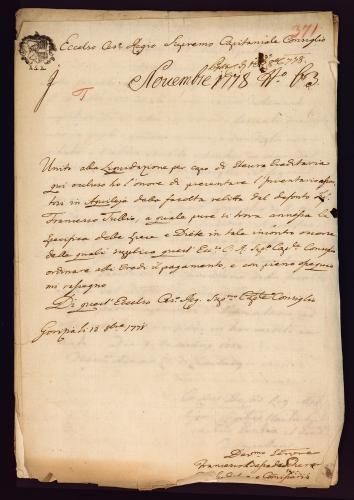 371
Eccelso Ces.º Regio Supremo Capitaniale Consiglio
Novembre 1778 Nº 63
Unito alla Liquidazione per capo di Steura Ereditaria
qui occluso ho l'onore di presentare l'Inventario
in Aquileja della facoltà relitta dal defonto
Francesco Tullio, a quale pure si trova annessa la
Specifica delle Spese e Diete in tale incontro occorse
delle quali supplico quest' Ecc.º C. R. Sup.º Cap.le Consiglio
ordinare alli Eredi il pagamento, e con pieno ossequio
mi rassegno
Di quest' Eccelso Ces.º Reg. Sup.mo Cap.le Consiglio
1778
Francesco